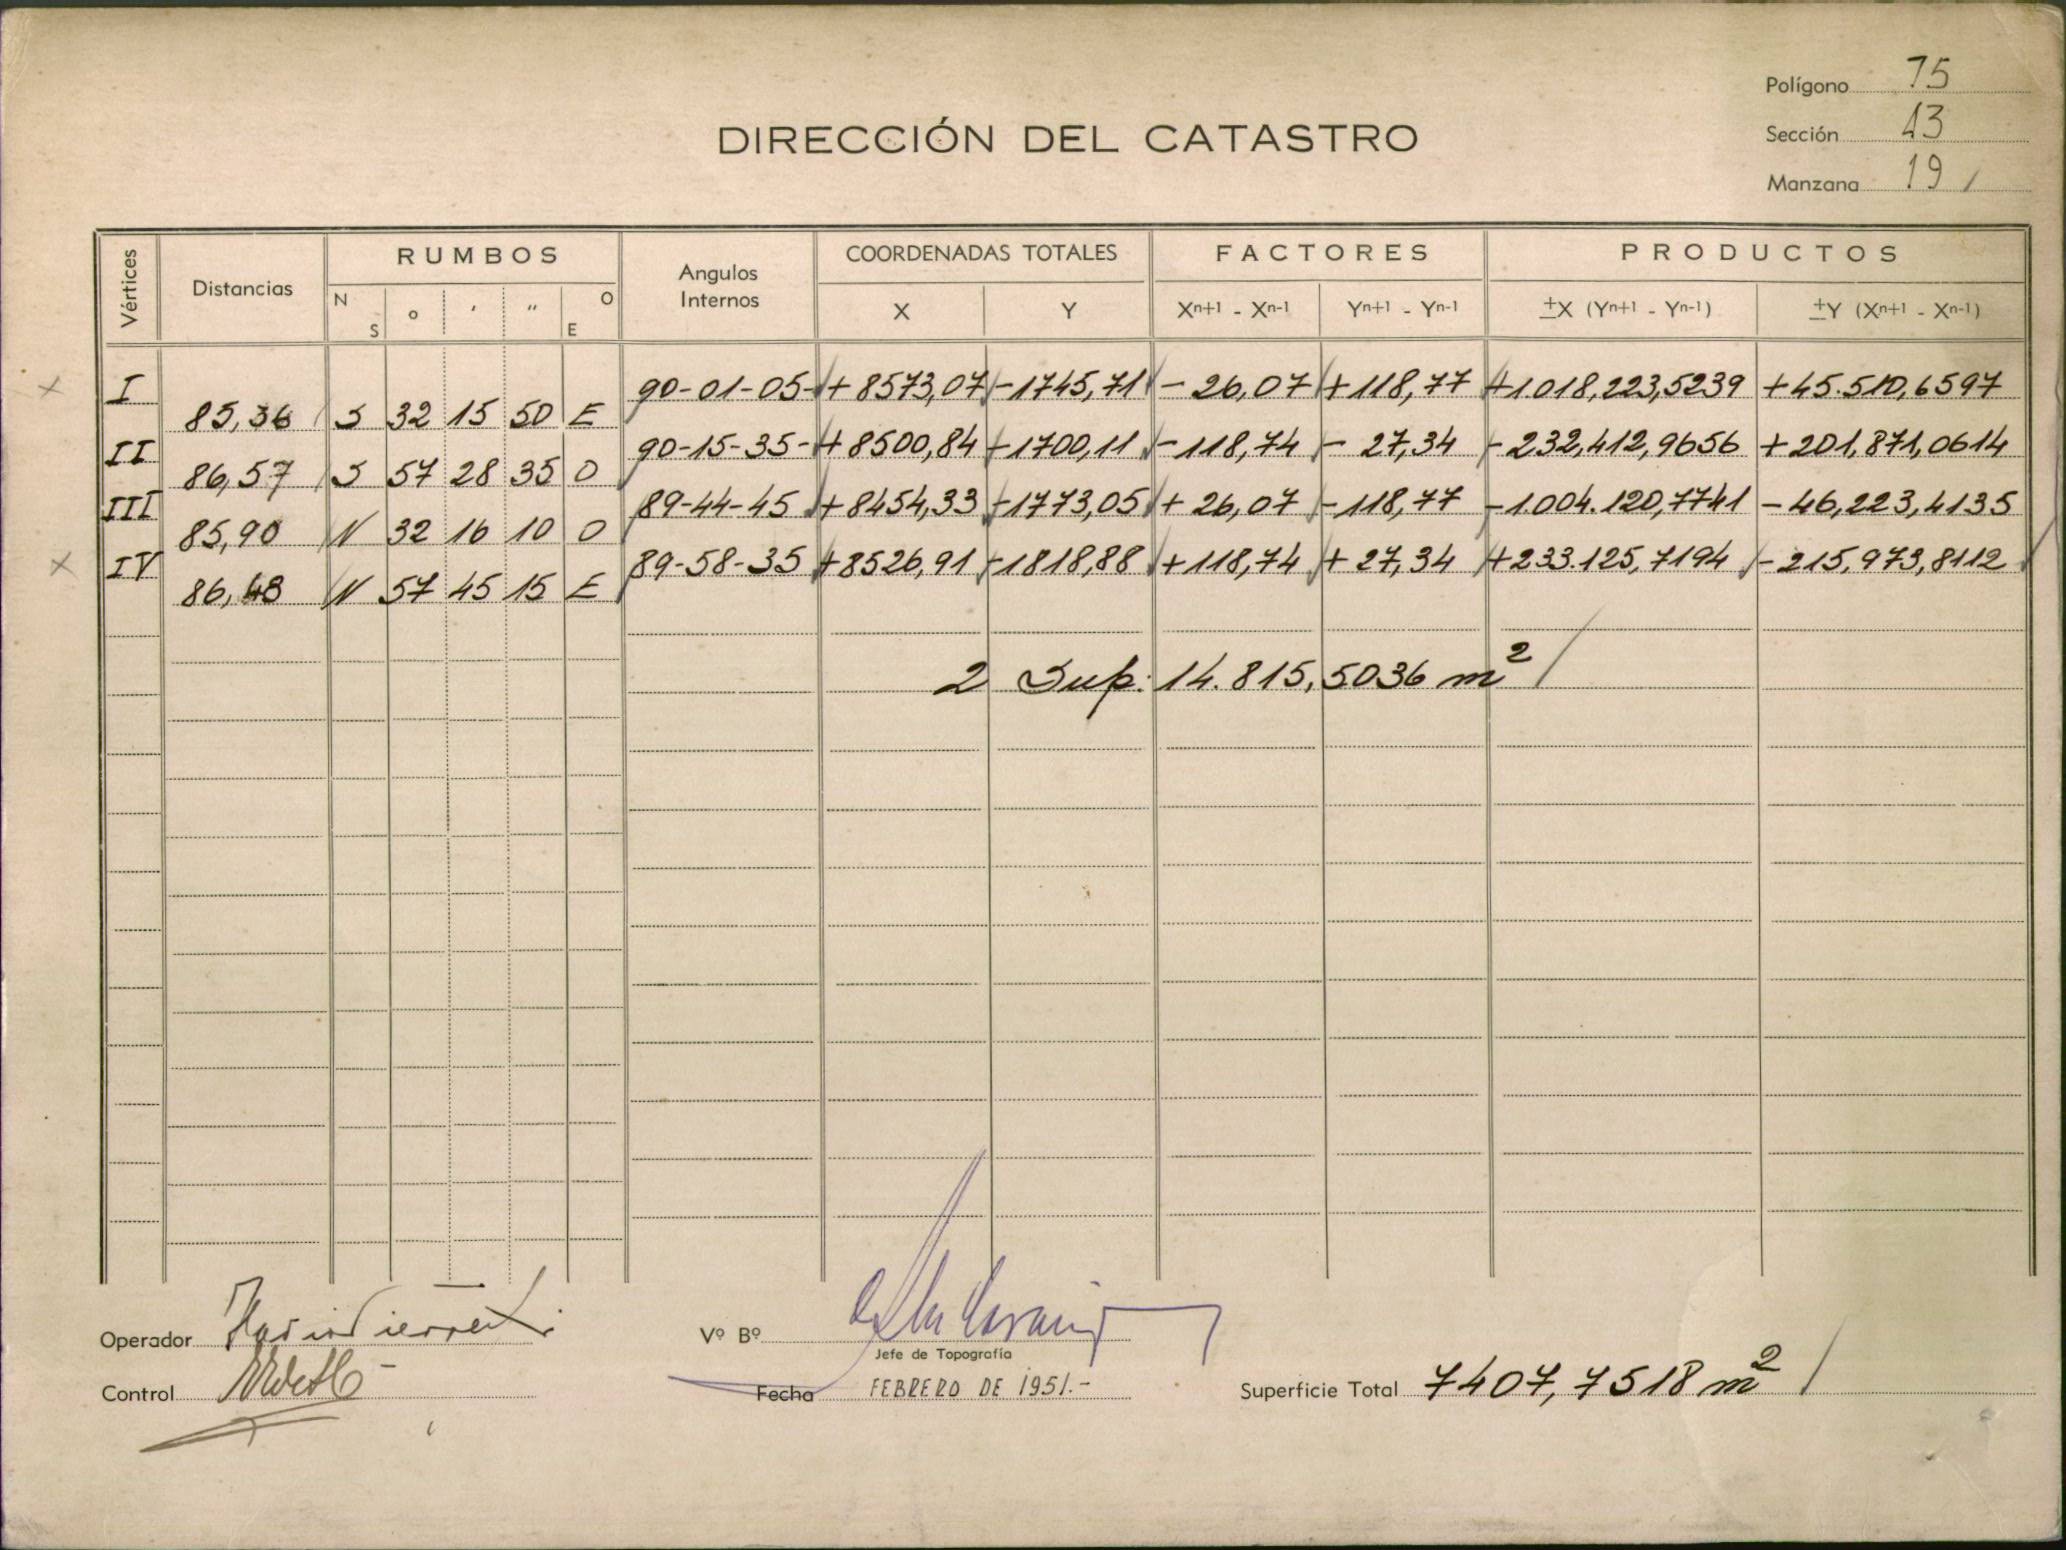 Polígono 75
DIRECCIÓN DEL CATASTRO
Sección 13
Manzana 19
Vértices Distancias RUMBOS Angulos Internos COORDENADAS TOTALES FACTORES PRODUCTOS
N S o ' " O E X Y Xn+1 - Xn-1 Yn+1 - Yn-1 ±X (Yn+1 - Yn-1) ±Y (Xn+1 - Xn-1)
I 90-01-05- + 8573,07 -1745,71 - 26,07 +118,77 +1.018,223,5239 +45.510,6597
85,36 S 32 15 50 E
II 90-15-35- + 8500,84 -1700,11 -118,74 - 27,34 - 232,412,9656 +201,871,0614
86,57 S 57 28 35 O
III 89-44-45 +8454,33 -1773,05 + 26,07 -118,77 -1.004.120,7741 -46,223,4135
85,90 N 32 16 10 O
IV 89-58-35 +8526,91 -1818,88 +118,74 + 27,34 +233.125,7194 -215,973,8112
86,48 N 57 45 15 E
2 Sup. 14.815,5036 m²
Operador
Vº Bº
Jefe de Topografía
Control
Fecha FEBRERO DE 1951.-
Superficie Total 7407,7518 m²